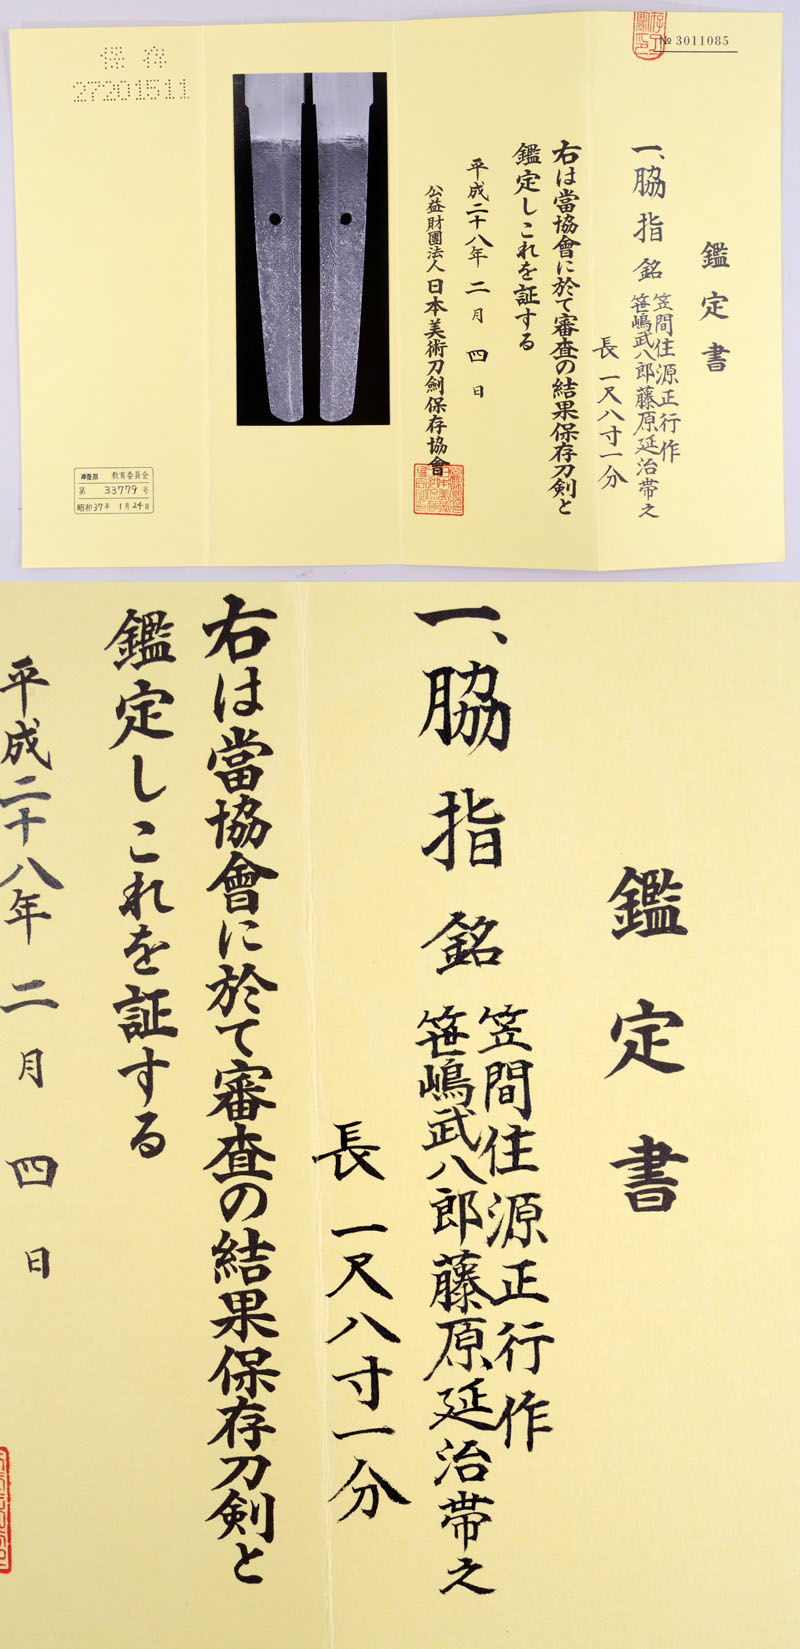 № 3011085
鑑定書
一、脇指 銘 笠間住源正行作
笹嶋武八郎藤原延治帯之
長 一尺八寸一分
右は當協會に於て審査の結果保存刀剣と
鑑定しこれを証する
平成二十八年 二月 四日
公益財團法人 日本美術刀劍保存協會
保存
27201511
教育委員会
第 33779 号
昭和37年 1月24日
鑑定書
一、脇指 銘 笠間住源正行作
笹嶋武八郎藤原延治帯之
長 一尺八寸一分
右は當協會に於て審査の結果保存刀剣と
鑑定しこれを証する
平成二十八年 二月 四日